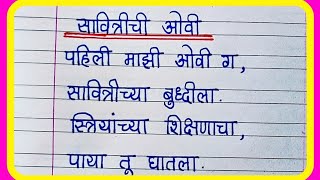 सावित्रीची ओवी
पहिली माझी ओवी ग,
सावित्रीच्या बुध्दीला.
स्त्रियांच्या शिक्षणाचा,
पाया तू घातला.